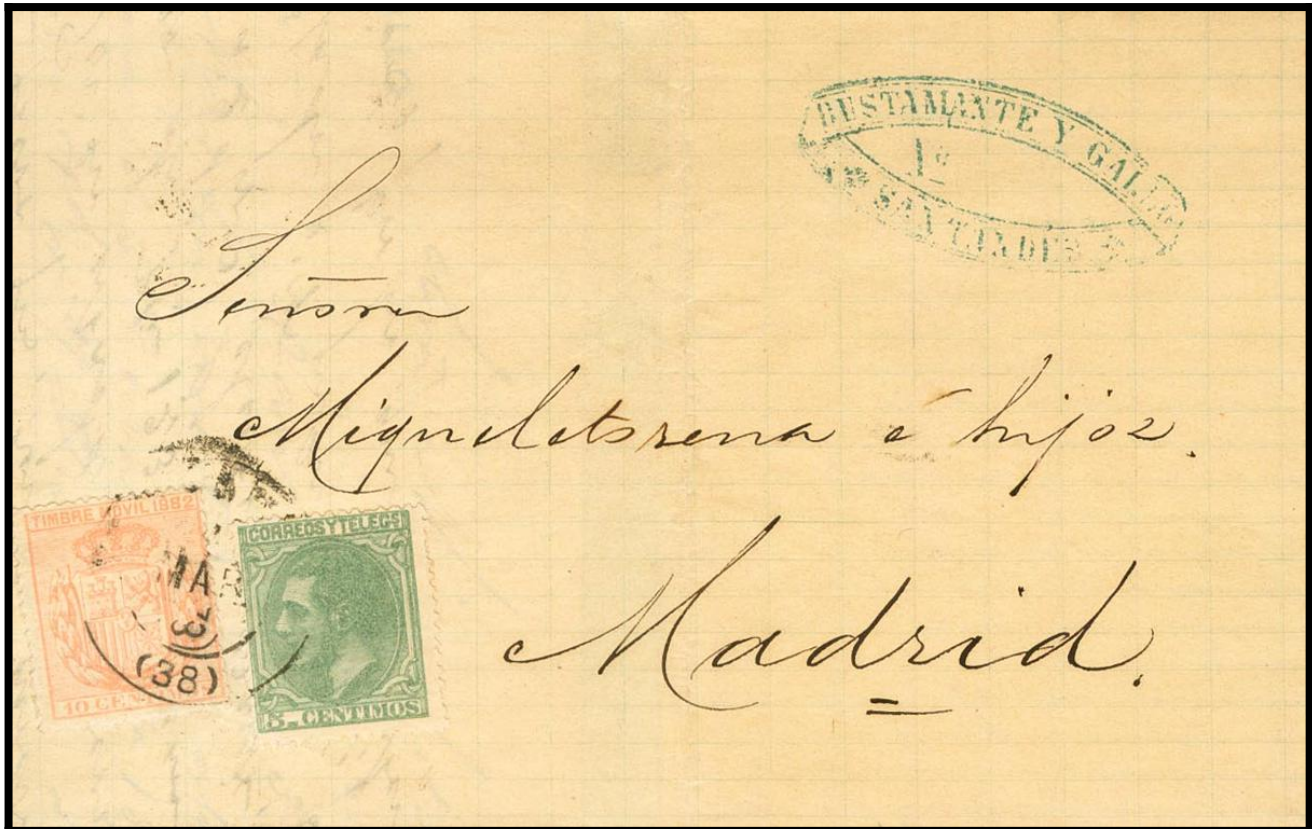 BUSTAMANTE Y
1ª
SANTANDER
Señores
Migueletorena é hijos.
Madrid.
TIMBRE MOVIL 1882
10 CEN
MAR
(38)
CORREOS Y TELEGS
5. CENTIMOS